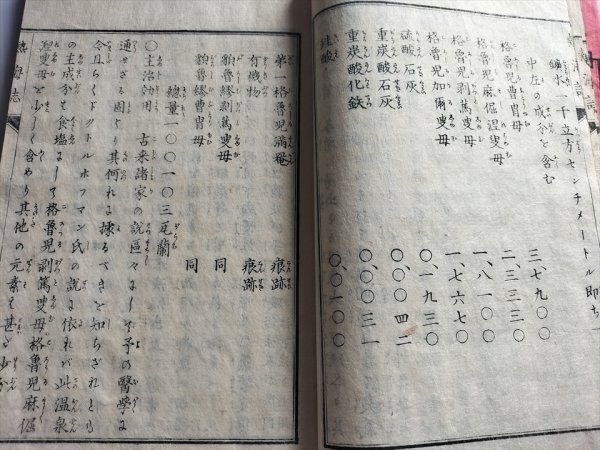 鑛水一千立方センチメートル即チ
中左の成分を含む
格魯兒曹胄母 三、七九〇〇
格魯兒麻倔涅叟母 二、三三三〇
格魯兒剥篤叟母 一、八一〇〇
格魯兒加爾叟母 一、七六七〇
硫酸石灰 〇、一九三〇
重炭酸石灰 〇、〇〇四二
重炭酸化鉄 〇、〇〇三一
硅酸 〇、〇〇一〇〇
第一格魯兒滿俺 痕跡
有機物 痕跡
貌魯繆剥篤叟母 同
貌魯繆曹胄母 同
總量一〇〇一〇三瓦蘭
〇主治効用 古来諸家の説區々にして予の醫學に
通せざる固より其何れに據るべきを知らざれとも
今且らくドクトルホフマン氏の説に依れバ此温泉
の主成分は食塩にして格魯兒剥篤叟母格魯兒麻倔
涅叟母を少しく含めり其他の元素は甚だ少
熱海志